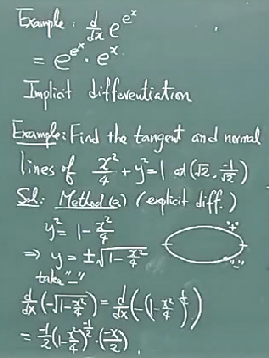 Example: d/dx e^{e^x}
= e^{e^x} · e^x.
Implicit differentiation
Example: Find the tangent and normal
lines of x²/4 + y² = 1 at (√2, -1/√2)
Sol: Method (a) (explicit diff.)
y² = 1 - x²/4
"+"
⇒ y = ±√(1 - x²/4)
"-"
take "-"
d/dx (-√(1 - x²/4)) = d/dx (-(1 - x²/4)^{1/2})
= -1/2 (1 - x²/4)^{-1/2} · (-x/2)